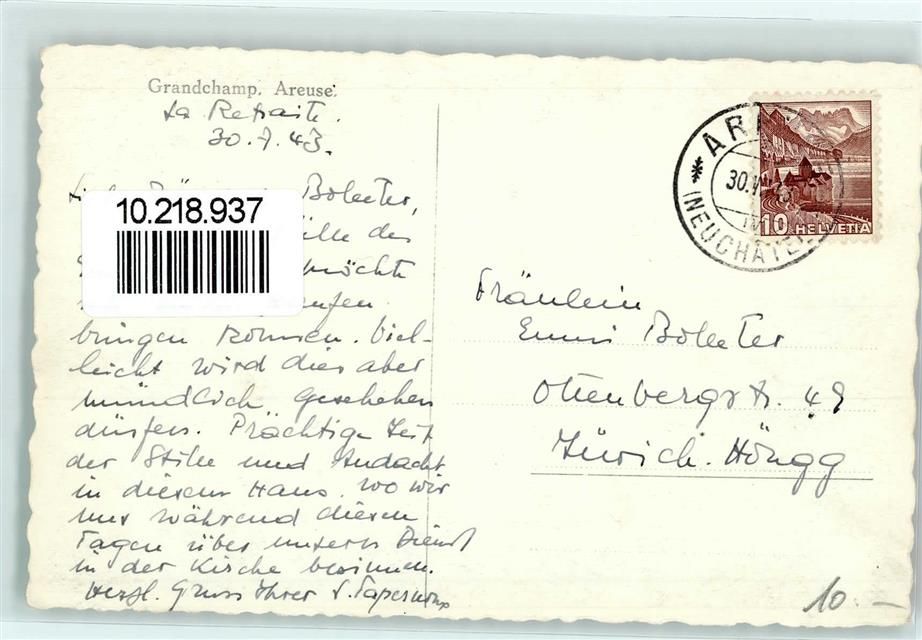 Grandchamp. Areuse.
La Retraite.
30.7.43.
Boleter,
10.218.937
des
möchte
bringen können. Viel-
leicht wird dies aber
mündlich geschehen
dürfen. Prächtige Zeit
der Stille und Andacht
in diesem Haus. wo wir
uns während diesen
Tagen über unsern Dienst
in der Kirche besinnen.
Herzl. Gruss Ihrer
NEUCHÂTEL
10 HELVETIA
Fräulein
Emmi Boleter
Ottenbergstr. 49
Zürich. Höngg
10.—